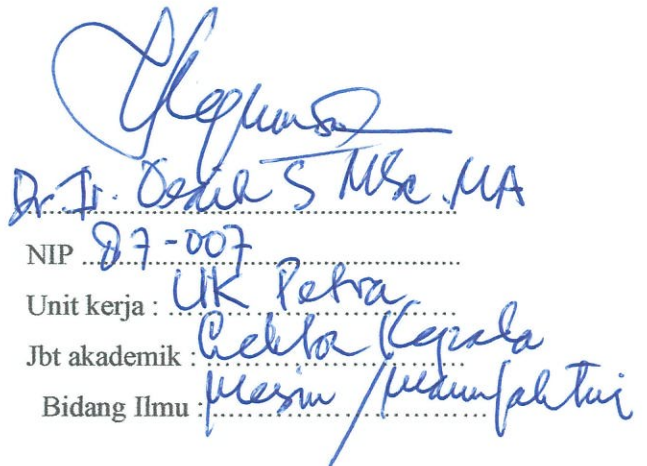 Dr. Ir. Oegik S MSc. MA
NIP 87-007
Unit kerja : UK Petra
Jbt akademik : Lektor Kepala
Bidang Ilmu : Mesin / Manufaktur